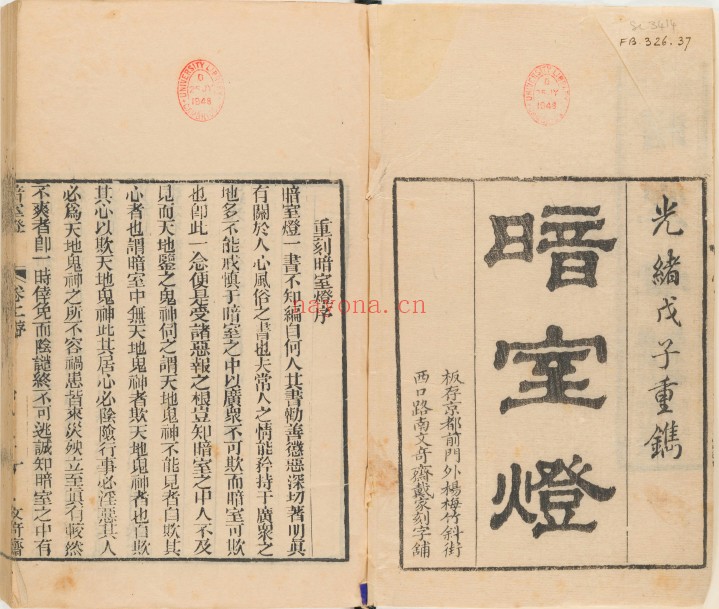 Sc 3414
FB.326.37
光緒戊子重鐫
暗室燈
板存京都前門外楊梅竹斜街
西口路南文奇齋戴家刻字鋪
重刻暗室燈序
暗室燈一書不知編自何人其書勸善懲惡深切著明真
有關於人心風俗之書也夫常人之情能矜持于廣衆之
地多不能戒慎于暗室之中以廣衆不可欺而暗室可欺
也卽此一念便是受諸惡報之根豈知暗室之中人不及
見而天地鑒之鬼神伺之謂天地鬼神不能見者自欺其
心者也謂暗室中無天地鬼神者欺天地鬼神者也自欺
其心以欺天地鬼神此其居心必陰險行事必淫惡其人
必為天地鬼神之所不容禍患皆來災殃立至眞有較然
不爽者卽一時倖免而陰譴終不可逃誠知暗室之中有
暗室燈
卷上序
文奇齋
UNIVERSITY LIBRARY
1948
UNIVERSITY LIBRARY
1948
nayona.cn